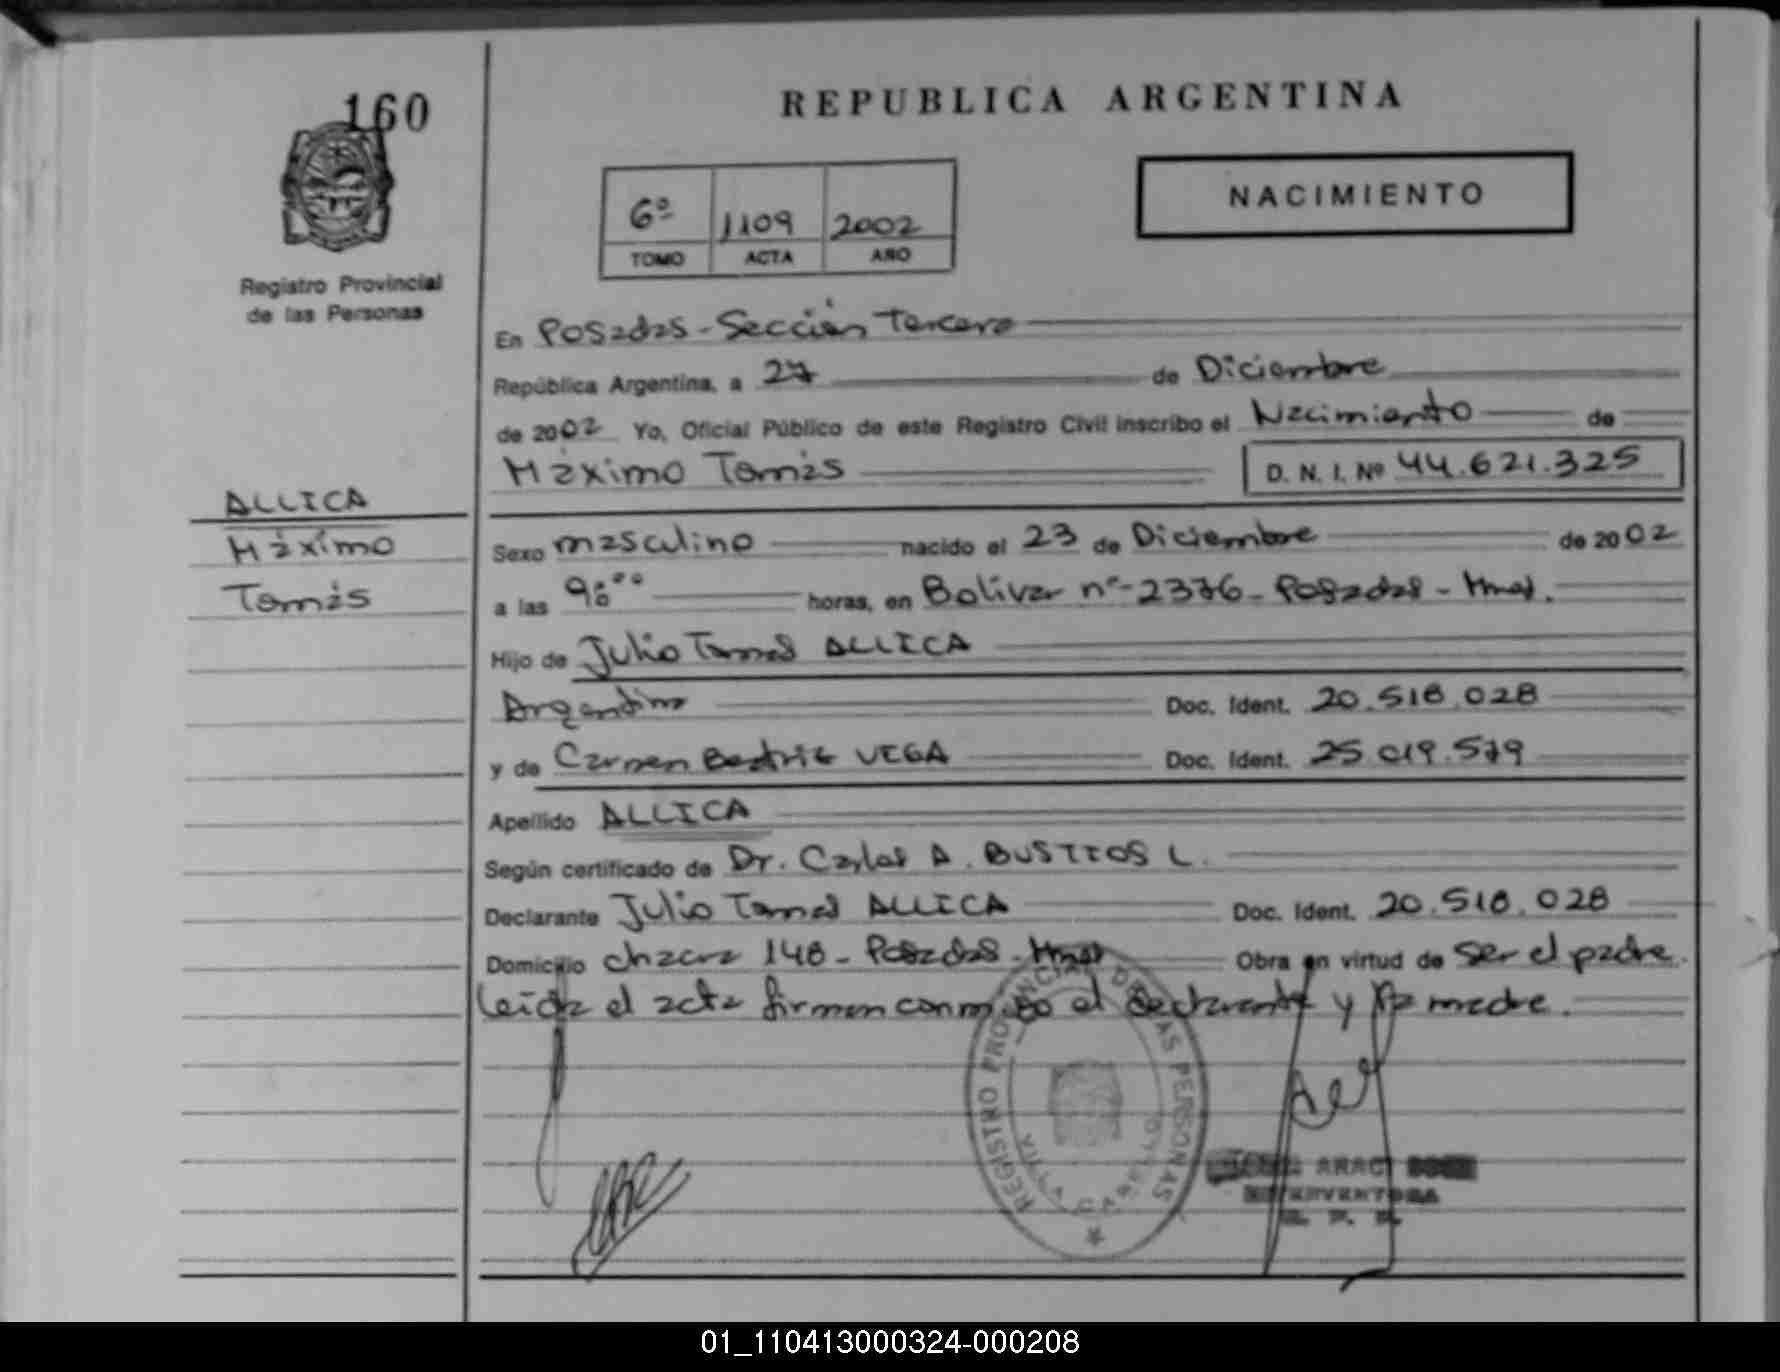 160
REPUBLICA ARGENTINA
NACIMIENTO
6º 1109 2002
TOMO ACTA AÑO
Registro Provincial
de las Personas
En Posadas - Sección Tercera
República Argentina, a 27 de Diciembre
de 2002 Yo, Oficial Público de este Registro Civil inscribo el Nacimiento de
Máximo Tomás D. N. I. Nº 44.621.325
ALLICA
Máximo
Tomás
Sexo masculino nacido el 23 de Diciembre de 2002
a las 9:00 horas, en Bolívar nº - 2376 - Posadas - Mnes.
Hijo de Julio Tomas ALLICA
Argentino Doc. Ident. 20.518.028
y de Carmen Beatriz VEGA Doc. Ident. 25.019.579
Apellido ALLICA
Según certificado de Dr. Carlos A. BUSTTOS L.
Declarante Julio Tomas ALLICA Doc. Ident. 20.518.028
Domicilio chacra 148 - Posadas - Mnes Obra en virtud de ser el padre.
Leída el acta firman conmigo el declarante y la madre.
REGISTRO PROVINCIAL DE LAS PERSONAS
VILLA CABELLO
ARACI
INTERVENTORA
R. P. P.
01_110413000324-000208